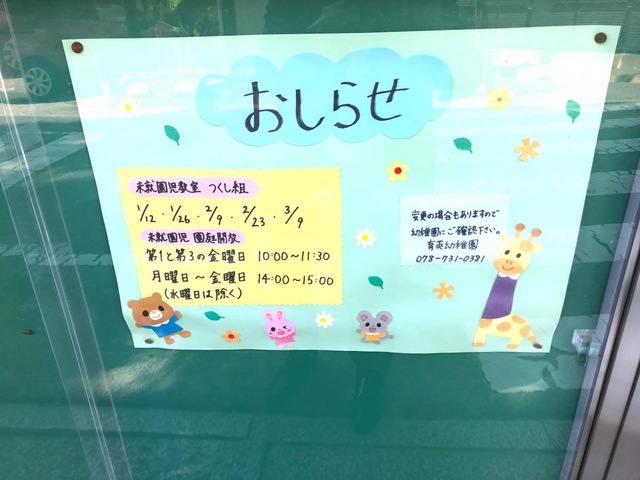 おしらせ
未就園児教室 つくし組
1/12・1/26・2/9・2/23・3/9
未就園児 園庭開放
第1と第3の金曜日 10:00〜11:30
月曜日〜金曜日 14:00〜15:00
(水曜日は除く)
変更の場合もありますので
幼稚園にご確認下さい。
育英幼稚園
078-731-0381